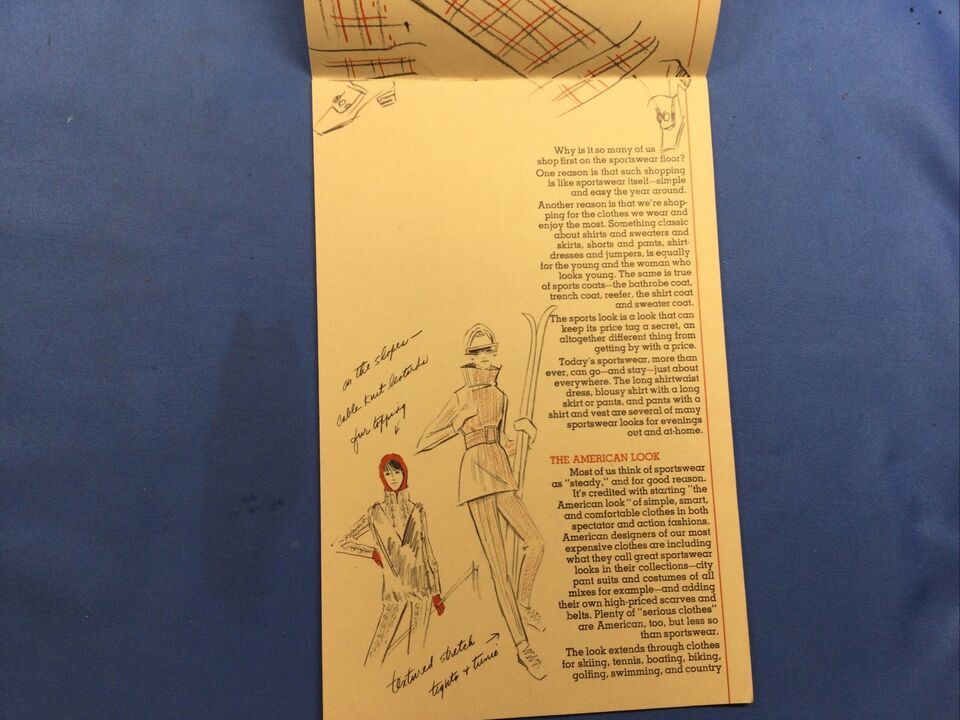 Why is it so many of us
shop first on the sportswear floor?
One reason is that such shopping
is like sportswear itself—simple
and easy the year around.
Another reason is that we're shop-
ping for the clothes we wear and
enjoy the most. Something classic
about shirts and sweaters and
skirts, shorts and pants, shirt-
dresses and jumpers, is equally
for the young and the woman who
looks young. The same is true
of sports coats—the bathrobe coat,
trench coat, reefer, the shirt coat
and sweater coat.
The sports look is a look that can
keep its price tag a secret, an
altogether different thing from
getting by with a price.
Today's sportswear, more than
ever, can go—and stay—just about
everywhere. The long shirtwaist
dress, blousy shirt with a long
skirt or pants, and pants with a
shirt and vest are several of many
sportswear looks for evenings
out and at-home.
THE AMERICAN LOOK
Most of us think of sportswear
as "steady," and for good reason.
It's credited with starting "the
American look" of simple, smart,
and comfortable clothes in both
spectator and action fashions.
American designers of our most
expensive clothes are including
what they call great sportswear
looks in their collections—city
pant suits and costumes of all
mixes for example—and adding
their own high-priced scarves and
belts. Plenty of "serious clothes"
are American, too, but less so
than sportswear.
The look extends through clothes
for skiing, tennis, boating, biking,
golfing, swimming, and country
on the slopes—
cable knit leotards
fur topping
textured stretch
tights + tunic